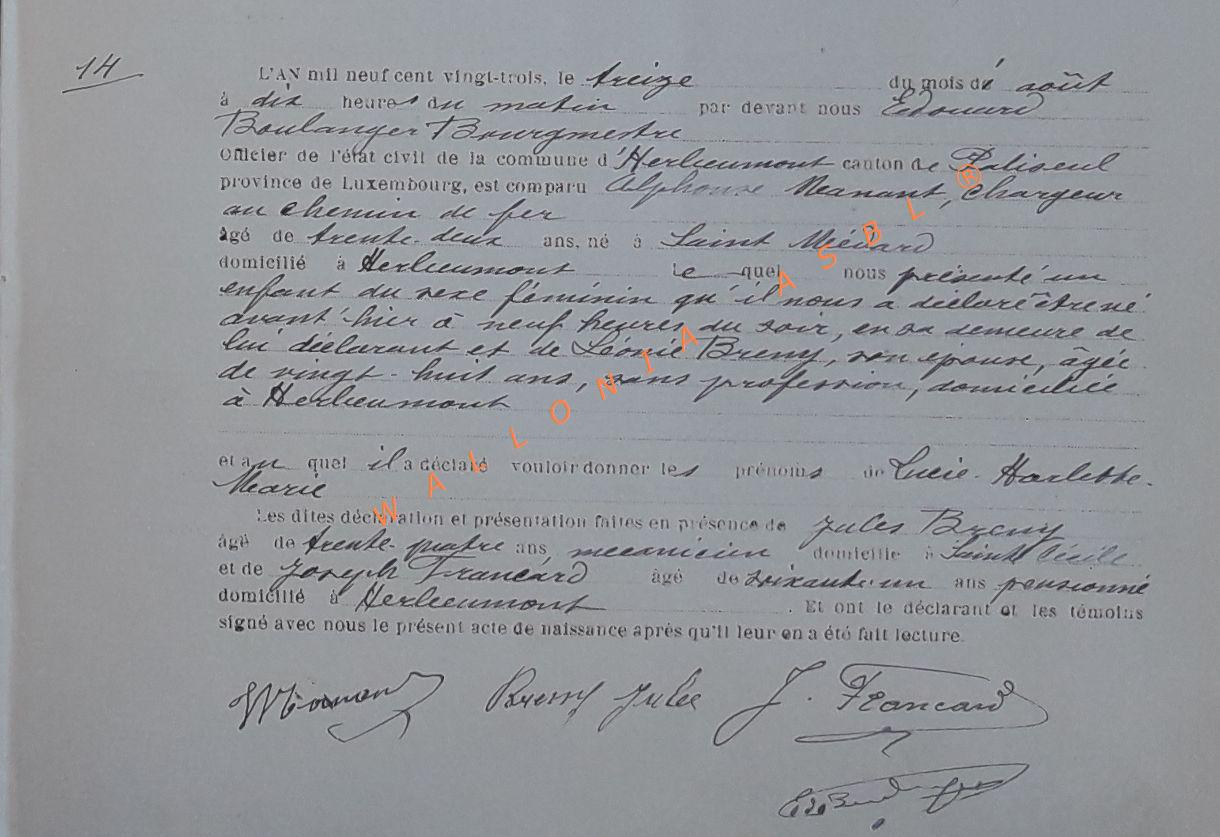 14
L'AN mil neuf cent vingt-trois, le treize du mois d' août
à dix heures du matin par devant nous Edouard
Boulanger Bourgmestre
Officier de l'état civil de la commune d'Herbeumont canton de Paliseul
province de Luxembourg, est comparu Alphonse Manant, chargeur
au chemin de fer
âgé de trente-deux ans, né à Saint Médard
domicilié à Herbeumont le quel nous présenté un
enfant du sexe féminin qu'il nous a déclaré être né
avant'hier à neuf heures du soir, en sa demeure de
lui déclarant et de Léonie Breny, son épouse, âgée
de vingt-huit ans, sans profession, domiciliée
à Herbeumont
et au quel il a déclaré vouloir donner les prénoms de Lucie-Harlette-
Marie
Les dites déclaration et présentation faites en présence de Jules Breny
âgé de trente-quatre ans, mecanicien domicilié à Sainte Cécile
et de Joseph Francard âgé de soixante-un ans pensionné
domicilié à Herbeumont. Et ont le déclarant et les témoins
signé avec nous le présent acte de naissance après qu'il leur en a été fait lecture.
Breny Jules J. Francard
WALLONIA ASBL ®